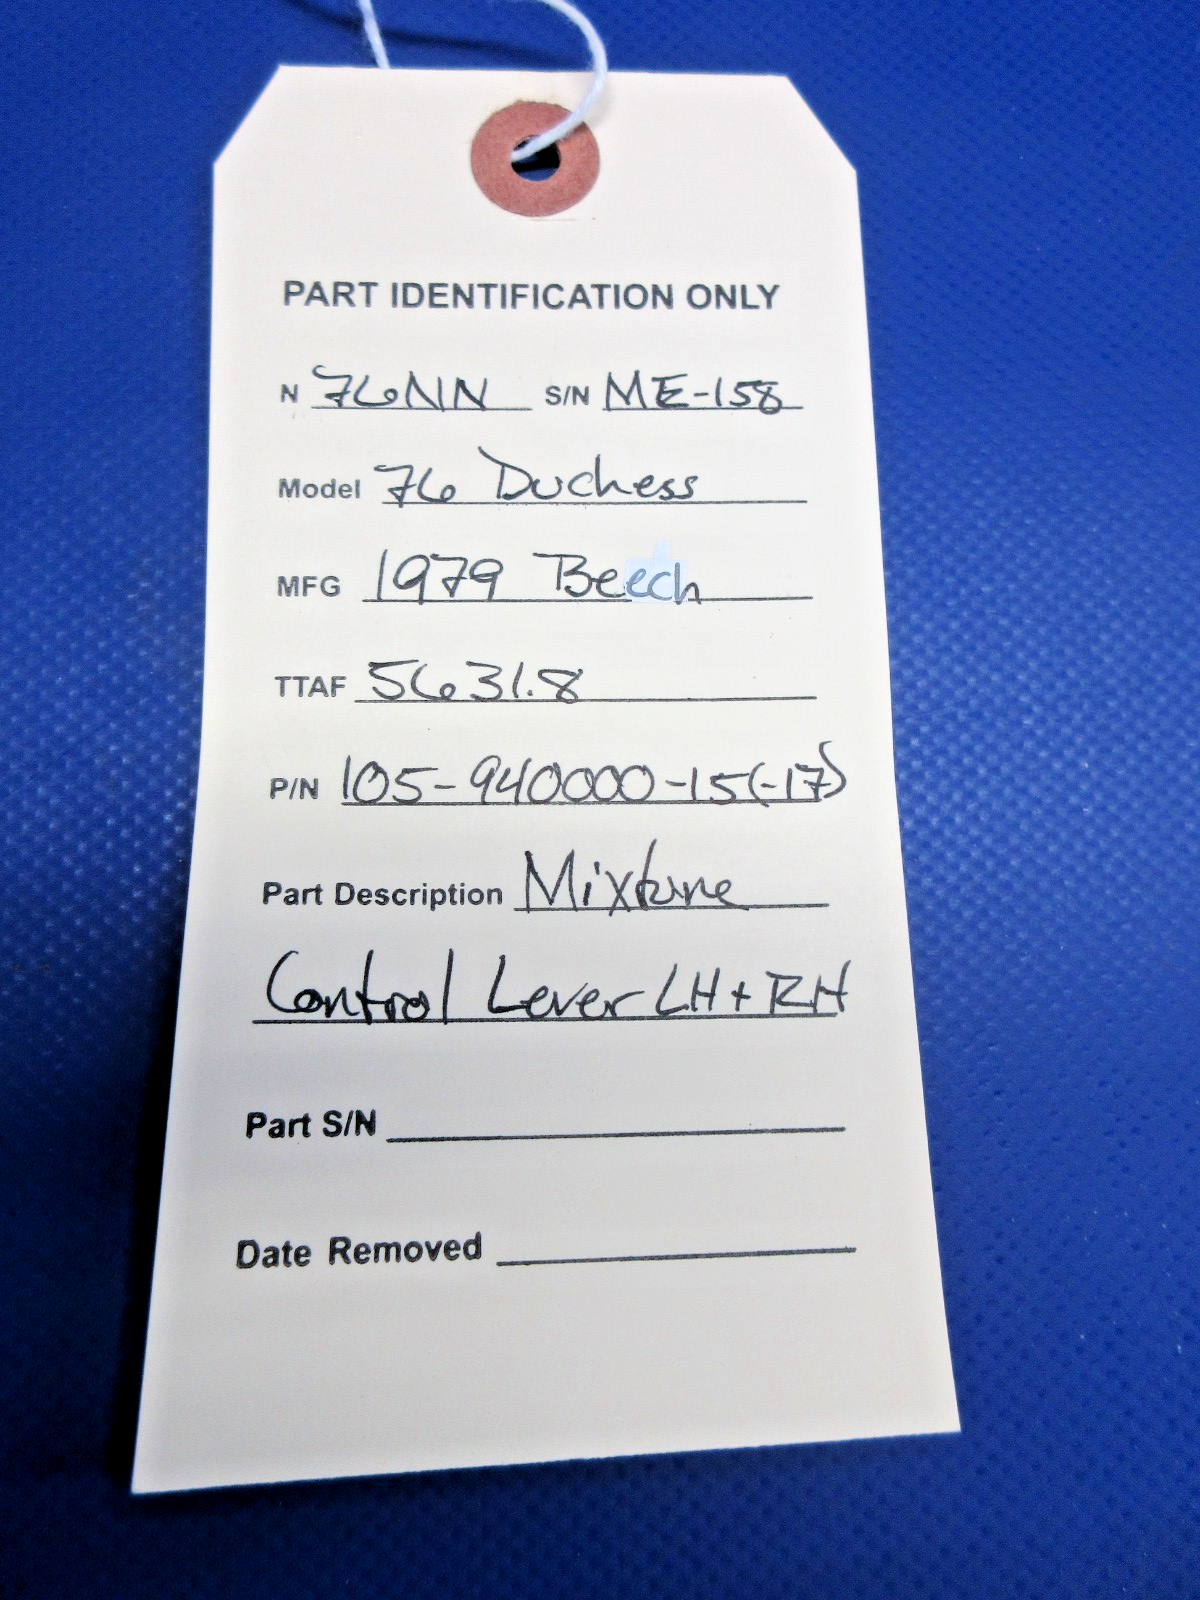 PART IDENTIFICATION ONLY
N 76NN S/N ME-158
Model 76 Duchess
MFG 1979 Beech
TTAF 5631.8
P/N 105-940000-15(-17)
Part Description Mixture
Control Lever LH + RH
Part S/N
Date Removed